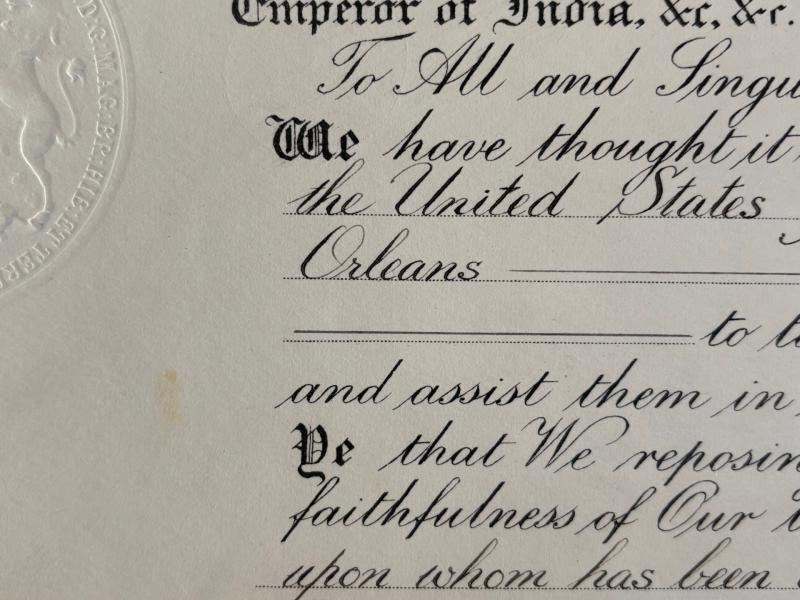 Emperor of India, &c, &c.
To All and Singu
We have thought it
the United States
Orleans
to t
and assist them in
Ye that We reposin
faithfulness of Our
upon whom has been
D:G:MAG:BR:HIB:ET TERR